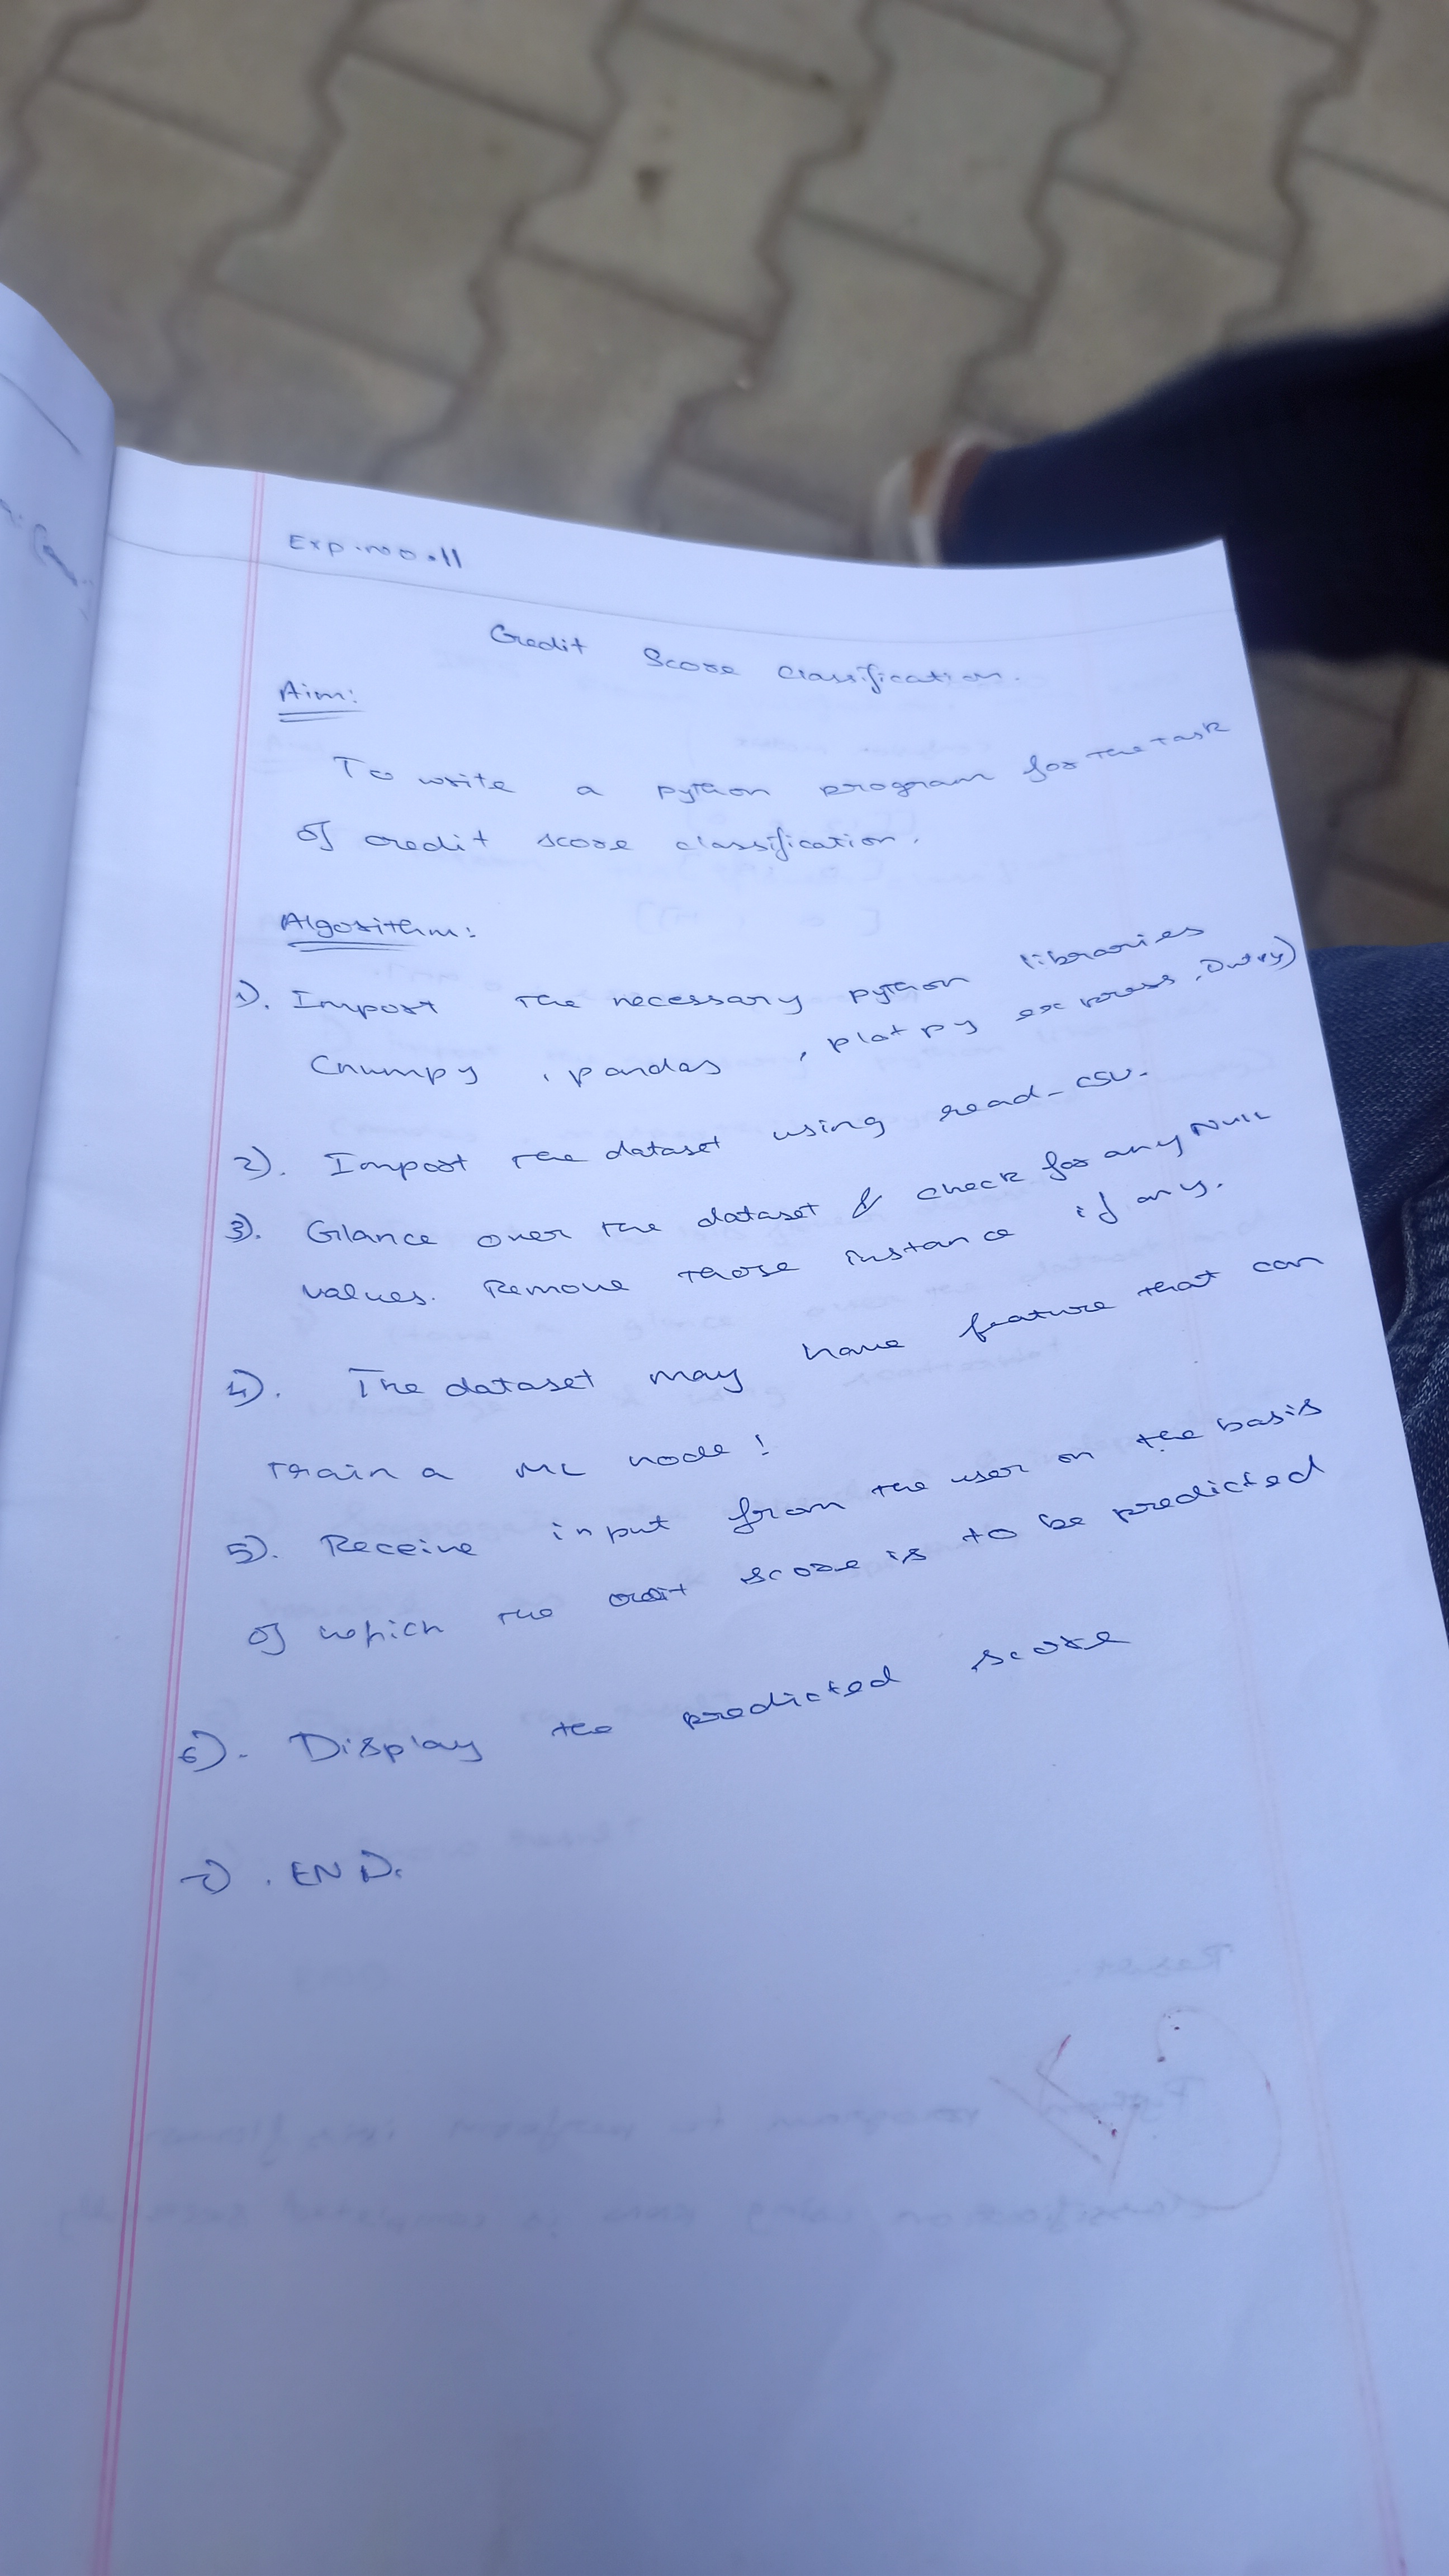 Exp.no 0.11
Credit Score Classification.
Aim:
To write a python program for the task
of credit score classification.
Algorithm:
1). Import the necessary python libraries
(numpy, pandas, plotpy express,
2). Import the dataset using read_csv.
3). Glance over the dataset & check for any Null
values. Remove those instance if any.
4). The dataset may have feature that can
train a ML node!
5). Receive input from the user on the basis
of which the score is to be predicted
6). Display the predicted score
7). END.